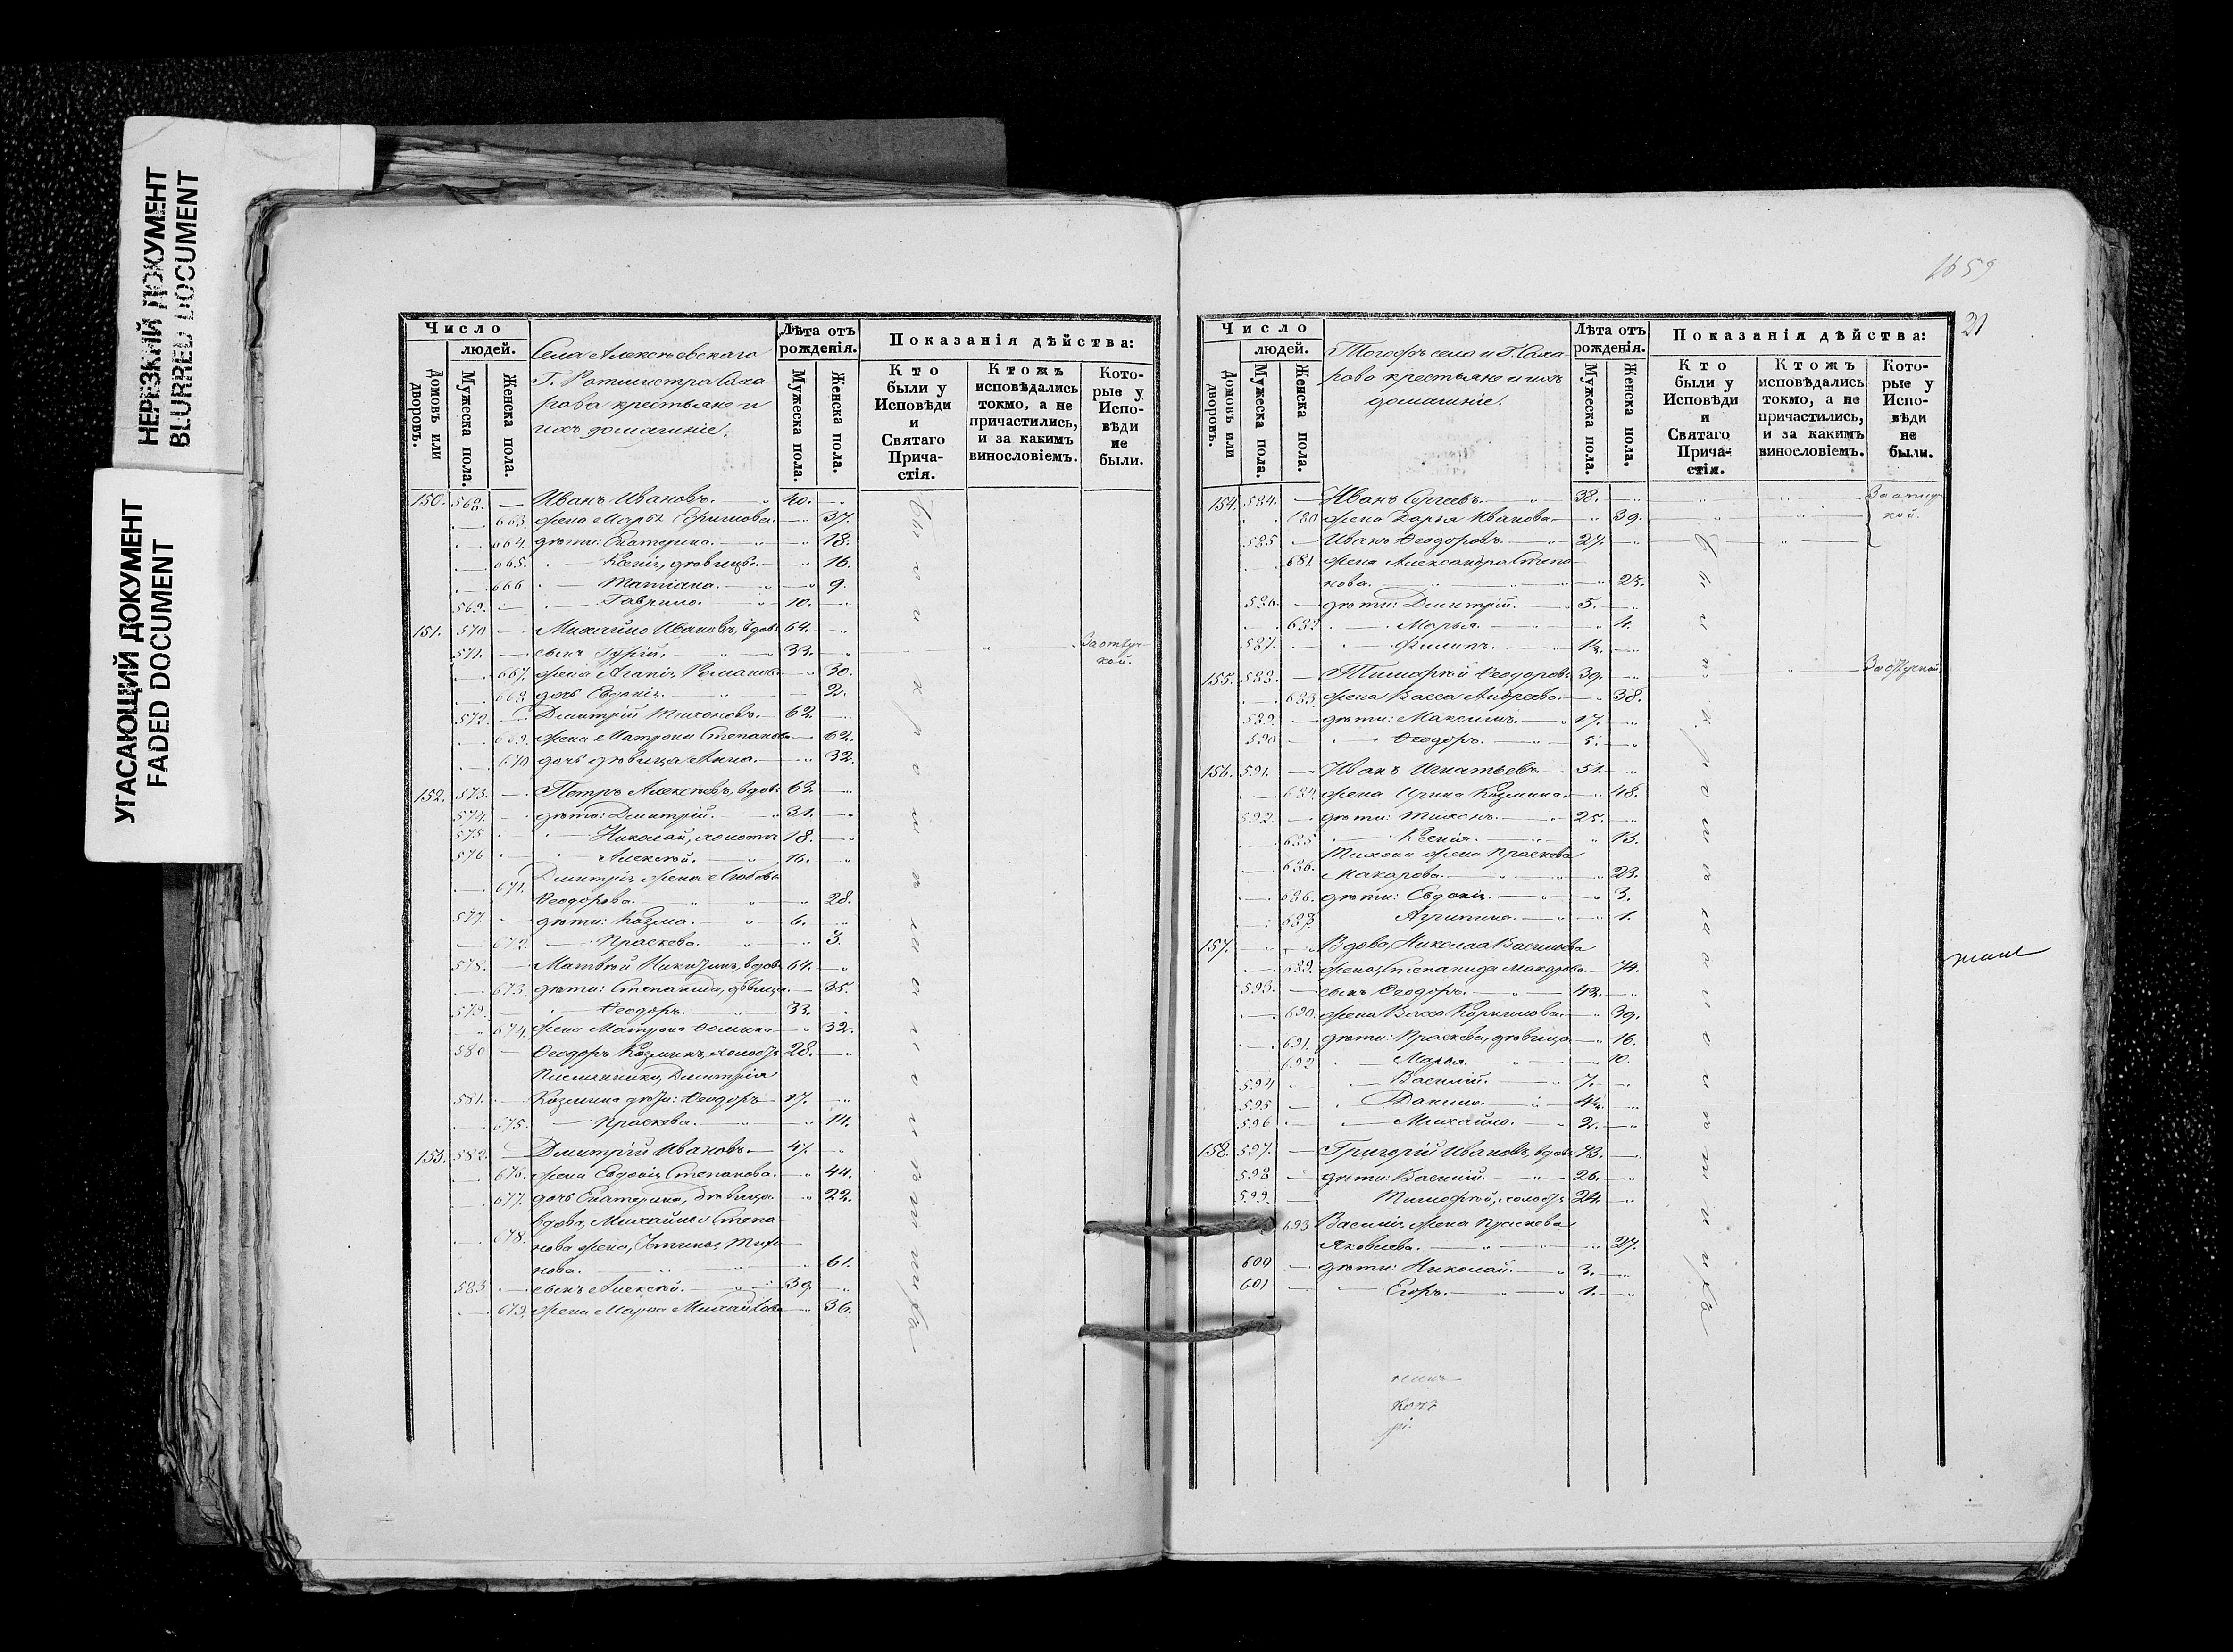 НЕРЕЗКИЙ ДОКУМЕНТ
BLURRED DOCUMENT
УГАСАЮЩИЙ ДОКУМЕНТ
FADED DOCUMENT
Число
людей.
Домовъ или дворовъ.
Мужеска пола.
Женска пола.
Села Алексѣевскаго
Г. Ротмистра Саха-
рова крестьяне и
ихъ домашніе.
Лѣта отъ рожденія.
Мужеска пола.
Женска пола.
Показанія дѣйства:
Кто были у Исповѣди и Святаго Прича-стія.
Ктожъ исповѣдались токмо, а не причастились, и за какимъ винословіемъ.
Кото-рые у Испо-вѣди не были.
150. 568. — Иванъ Ивановъ. 40.
663. жена Марѳа Ефимова. 37.
664. дѣти: Екатерина. 18.
665. Ксенія, дѣвица. 16.
666 Татіана. 9.
569. Гаврило. 10.
151. 570 Михайло Ивановъ, вдовъ 64.
571. сынъ Гурій. 33. За отлуч-
кой.
667. жена Агапія Романова. 30.
668. дочь Евдокія. 2.
572. Дмитрій Тихоновъ. 62.
669. жена Матрона Степанова 62.
670 дочь дѣвица Анна. 32.
152. 573. Петръ Алексѣевъ, вдовъ 63.
574. дѣти: Дмитрій. 31.
575 Николай, холостъ 18.
576 Алексѣй. 16.
671. Дмитрія жена Любовь
Ѳеодорова. 28.
577. дѣти: Козма. 6.
672. Праскева. 3.
578. Матвѣй Никитинъ, вдовъ 64.
673. дѣти: Степанида, дѣвица. 35.
579. Ѳеодоръ. 33.
674. жена Матрона Ѳомина 32.
580 Ѳеодоръ Козминъ, холостъ 28.
Племянники, Дмитрія
581. Козмина дѣти: Ѳеодоръ 17.
675. Праскева. 14.
153. 582. Дмитрій Ивановъ. 47.
676. жена Евдокія Степанова. 44.
677. дочь Екатерина, дѣвица. 22.
678. вдова, Михайла Степа
нова жена,
нова. 61.
583 сынъ Алексѣй. 39.
679. жена Марѳа Михайлова 36.
были к ро ш а и о и п т и и хъ
2659
21
Число
людей.
Домовъ или дворовъ.
Мужеска пола.
Женска пола.
Тогожъ села и Г. Саха-
рова крестьяне и ихъ
домашніе.
Лѣта отъ рожденія.
Мужеска пола.
Женска пола.
Показанія дѣйства:
Кто были у Исповѣди и Святаго Прича-стія.
Ктожъ исповѣдались токмо, а не причастились, и за какимъ винословіемъ.
Кото-рые у Испо-вѣди не были.
154. 584. Иванъ Сергѣевъ. 38. За отлуч-
680 жена Дарья Иванова. 39. кой.
585 Иванъ Ѳеодоровъ. 27.
681. жена Александра Степа
нова. 23.
586 дѣти: Дмитрій. 5.
682 Марья. 4.
587. Филипъ. 1½.
155. 588. Тимофѣй Ѳеодоровъ 39. За отлучкой.
683. жена Васса Андреева. 38.
589 дѣти: Максимъ. 17.
590 Ѳеодоръ. 5.
156. 591. Иванъ Игнатьевъ. 51.
684. жена Ирина Козмина. 48.
592. дѣти: Тихонъ. 25.
685 Ксенія. 13.
686. Тихона жена Праскева
Макарова. 23.
686. дѣти: Евдокія. 3.
687. Агрипина. 1.
157. Вдова, Николая Васильева
689. жена, Степанида Макарова. 74.
593. сынъ Ѳеодоръ. 42.
690. жена Васса Корнилова. 39.
691. дѣти: Праскева, дѣвица 16.
692 Марья. 10.
594 Василій. 7.
595 Данило. 4½.
596 Михайло. 2.
158. 597. Григорій Ивановъ, вдовъ 73.
598 дѣти: Василій. 26.
599. Тимофѣй, холостъ 24.
693 Василія жена Праскева
Яковлева. 27.
600 дѣти: Николай. 3.
601 Егоръ. 1.